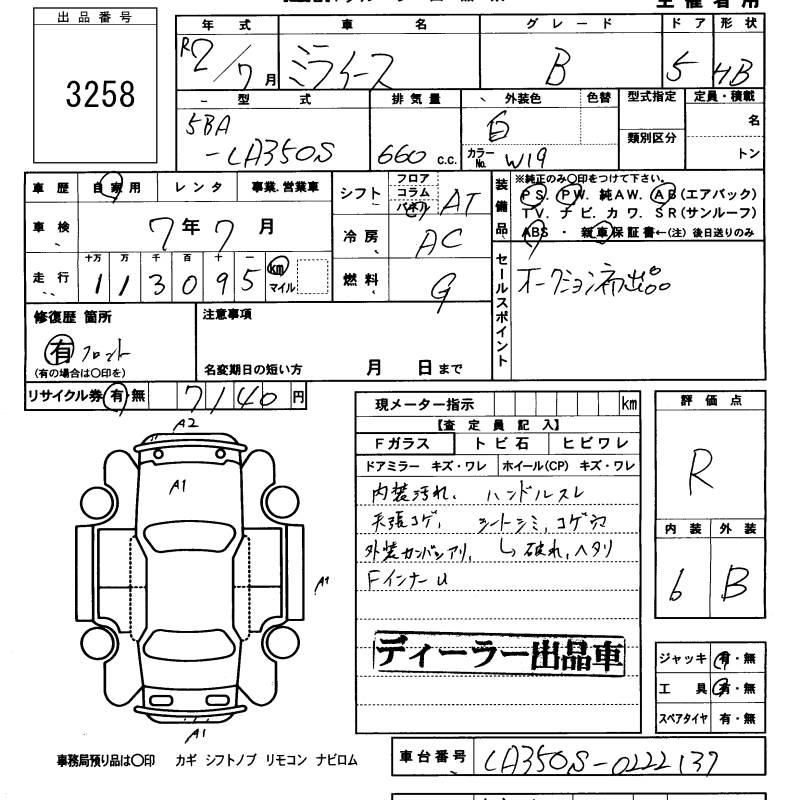 主催者用
出品番号
3258
年式 車名 グレード ドア 形状
R2/7月 ミライース B 5 HB
型式 排気量 外装色 色替 型式指定 定員・積載
5BA 白 名
-LA350S 660 C.C. カラーNo. W19 類別区分 トン
車歴 自家用 レンタ 事業.営業車
車検 7年7月
走行 十万 万 千 百 十 一
113095 km マイル
シフト フロア コラム パネル AT
冷房 AC
燃料 G
装備品 ※純正のみ○印をつけて下さい。
PS. PW. 純AW. AB(エアバック)
TV. ナビ. カワ. SR(サンルーフ)
ABS ・ 新車保証書←(注)後日送りのみ
セールスポイント
オークション初出品
修復歴 箇所
有 フロント
(有の場合は○印を)
注意事項
名変期日の短い方 月 日まで
リサイクル券 有・無 7140 円
現メーター指示 km
【査定員記入】
Fガラス トビ石 ヒビワレ
ドアミラー キズ・ワレ ホイール(CP) キズ・ワレ
内装汚れ、 ハンドルスレ
天張コゲ、 シートシミ、コゲ穴
外装カンバンアリ、 ↳破れ、ヘタリ
FインナーU
ディーラー出品車
評価点
R
内装 外装
6 B
ジャッキ 有・無
工具 有・無
スペアタイヤ 有・無
A2
A1
A1
A1
事務局預り品は○印 カギ シフトノブ リモコン ナビロム
車台番号 LA350S-0222137